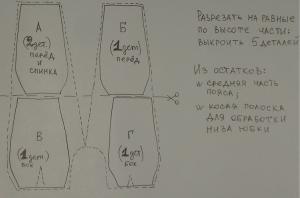 А
(2 дет.)
перёд
и
спинка
Б
(1 дет)
перёд
В
(1 дет)
бок
Г
(1 дет)
бок
Разрезать на равные
по высоте части:
выкроить 5 деталей
Из остатков:
средняя часть
пояса;
косая полоска
для обработки
низа юбки